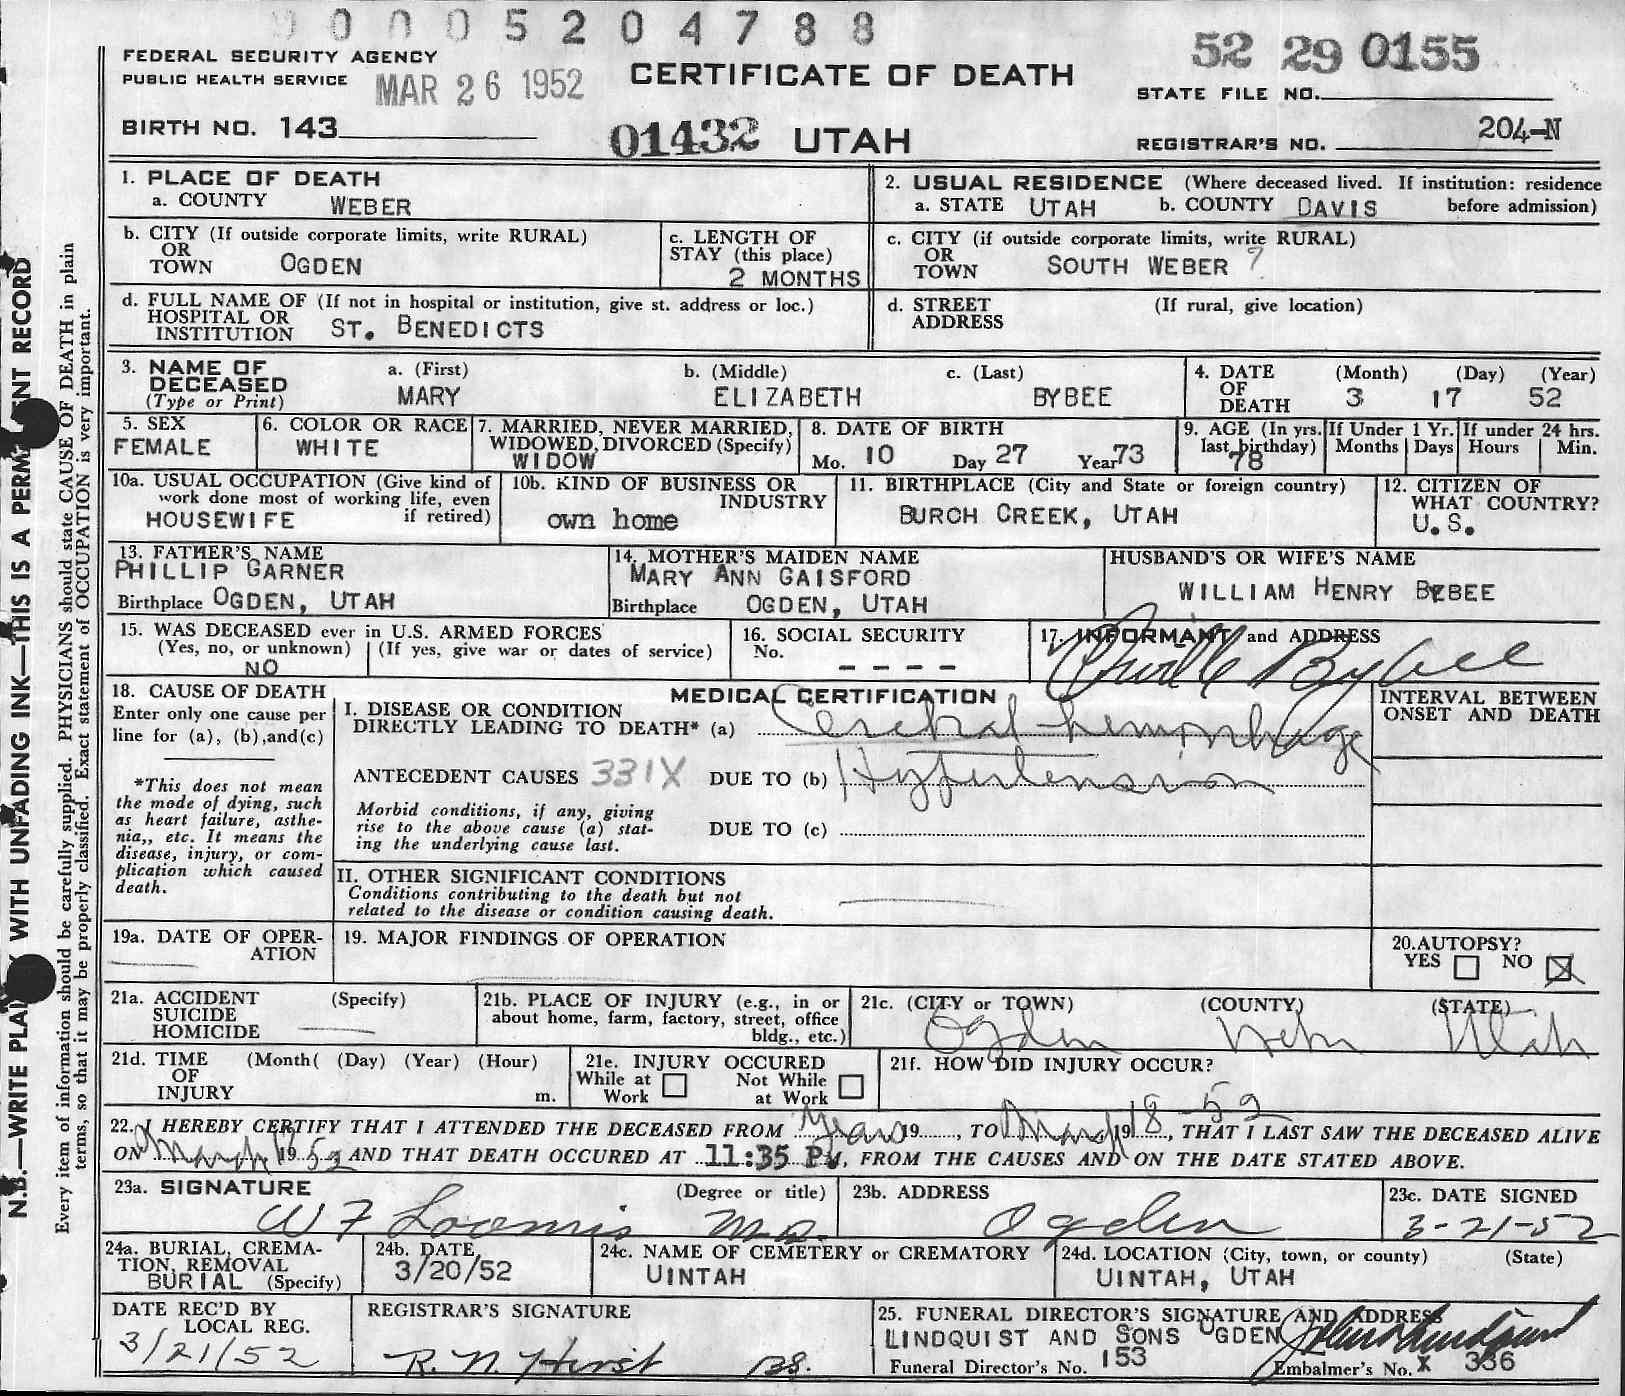 0 0 0 0 5 2 0 4 7 8 8
FEDERAL SECURITY AGENCY
PUBLIC HEALTH SERVICE
MAR 26 1952
CERTIFICATE OF DEATH
52 29 0155
STATE FILE NO.
BIRTH NO. 143
01432 UTAH
REGISTRAR'S NO. 204-N
1. PLACE OF DEATH
a. COUNTY WEBER
2. USUAL RESIDENCE (Where deceased lived. If institution: residence before admission)
a. STATE UTAH b. COUNTY DAVIS
b. CITY (If outside corporate limits, write RURAL)
OR
TOWN OGDEN
c. LENGTH OF
STAY (this place)
2 MONTHS
c. CITY (if outside corporate limits, write RURAL)
OR
TOWN SOUTH WEBER ?
d. FULL NAME OF (If not in hospital or institution, give st. address or loc.)
HOSPITAL OR
INSTITUTION ST. BENEDICTS
d. STREET (If rural, give location)
ADDRESS
3. NAME OF
DECEASED
(Type or Print)
a. (First) MARY
b. (Middle) ELIZABETH
c. (Last) BYBEE
4. DATE
OF
DEATH
(Month) (Day) (Year)
3 17 52
5. SEX
FEMALE
6. COLOR OR RACE
WHITE
7. MARRIED, NEVER MARRIED,
WIDOWED, DIVORCED (Specify)
WIDOW
8. DATE OF BIRTH
Mo. 10 Day 27 Year 73
9. AGE (In yrs.
last birthday)
78
If Under 1 Yr.
Months Days
If under 24 hrs.
Hours Min.
10a. USUAL OCCUPATION (Give kind of
work done most of working life, even
if retired)
HOUSEWIFE
10b. KIND OF BUSINESS OR
INDUSTRY
own home
11. BIRTHPLACE (City and State or foreign country)
BURCH CREEK, UTAH
12. CITIZEN OF
WHAT COUNTRY?
U.S.
13. FATHER'S NAME
PHILLIP GARNER
Birthplace OGDEN, UTAH
14. MOTHER'S MAIDEN NAME
MARY ANN GAISFORD
Birthplace OGDEN, UTAH
HUSBAND'S OR WIFE'S NAME
WILLIAM HENRY BYBEE
15. WAS DECEASED ever in U.S. ARMED FORCES
(Yes, no, or unknown) (If yes, give war or dates of service)
NO
16. SOCIAL SECURITY
No. - - - -
17. INFORMANT and ADDRESS
Orville Bybee
18. CAUSE OF DEATH
Enter only one cause per
line for (a), (b),and(c)
*This does not mean
the mode of dying, such
as heart failure, asthe-
nia,, etc. It means the
disease, injury, or com-
plication which caused
death.
MEDICAL CERTIFICATION
I. DISEASE OR CONDITION
DIRECTLY LEADING TO DEATH* (a) Cerebral hemorrhage
ANTECEDENT CAUSES 331X DUE TO (b) Hypertension
Morbid conditions, if any, giving
rise to the above cause (a) stat-
ing the underlying cause last.
DUE TO (c)
II. OTHER SIGNIFICANT CONDITIONS
Conditions contributing to the death but not
related to the disease or condition causing death.
INTERVAL BETWEEN
ONSET AND DEATH
19a. DATE OF OPER-
ATION
19. MAJOR FINDINGS OF OPERATION
20.AUTOPSY?
YES NO X
21a. ACCIDENT (Specify)
SUICIDE
HOMICIDE
21b. PLACE OF INJURY (e.g., in or
about home, farm, factory, street, office
bldg., etc.)
21c. (CITY or TOWN) (COUNTY) (STATE)
Ogden Web Utah
21d. TIME (Month( (Day) (Year) (Hour)
OF
INJURY m.
21e. INJURY OCCURED
While at Work Not While at Work
21f. HOW DID INJURY OCCUR?
22. I HEREBY CERTIFY THAT I ATTENDED THE DECEASED FROM Years 19......, TO March 18 -52 19......, THAT I LAST SAW THE DECEASED ALIVE
ON March 1952 AND THAT DEATH OCCURED AT 11:35 PM, FROM THE CAUSES AND ON THE DATE STATED ABOVE.
23a. SIGNATURE (Degree or title)
W F Loomis M.D.
23b. ADDRESS
Ogden
23c. DATE SIGNED
3-21-52
24a. BURIAL, CREMA-
TION, REMOVAL
BURIAL (Specify)
24b. DATE
3/20/52
24c. NAME OF CEMETERY or CREMATORY
UINTAH
24d. LOCATION (City, town, or county) (State)
UINTAH, UTAH
DATE REC'D BY
LOCAL REG.
3/21/52
REGISTRAR'S SIGNATURE
R. N. Hirst
25. FUNERAL DIRECTOR'S SIGNATURE AND ADDRESS
LINDQUIST AND SONS OGDEN
Funeral Director's No. 153
Embalmer's No. X 336
N.B.—WRITE PLAINLY WITH UNFADING INK—THIS IS A PERMANENT RECORD
Every item of information should be carefully supplied. PHYSICIANS should state CAUSE OF DEATH in plain
terms, so that it may be properly classified. Exact statement of OCCUPATION is very important.